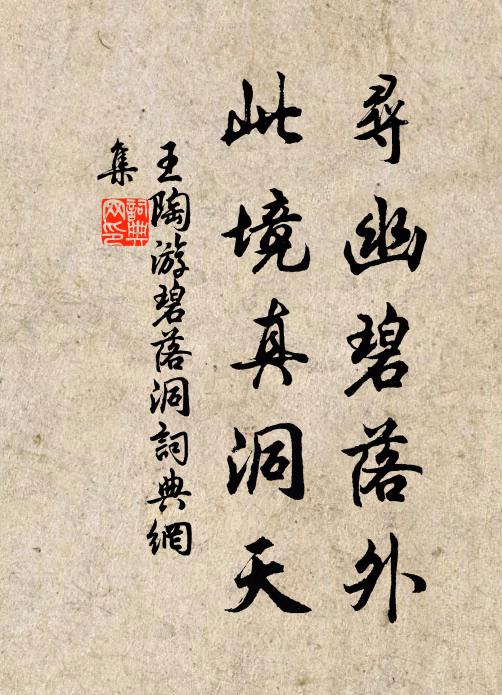 尋幽碧落外
此境真洞天
王陶游碧落洞詞典網
集
詞典
网印